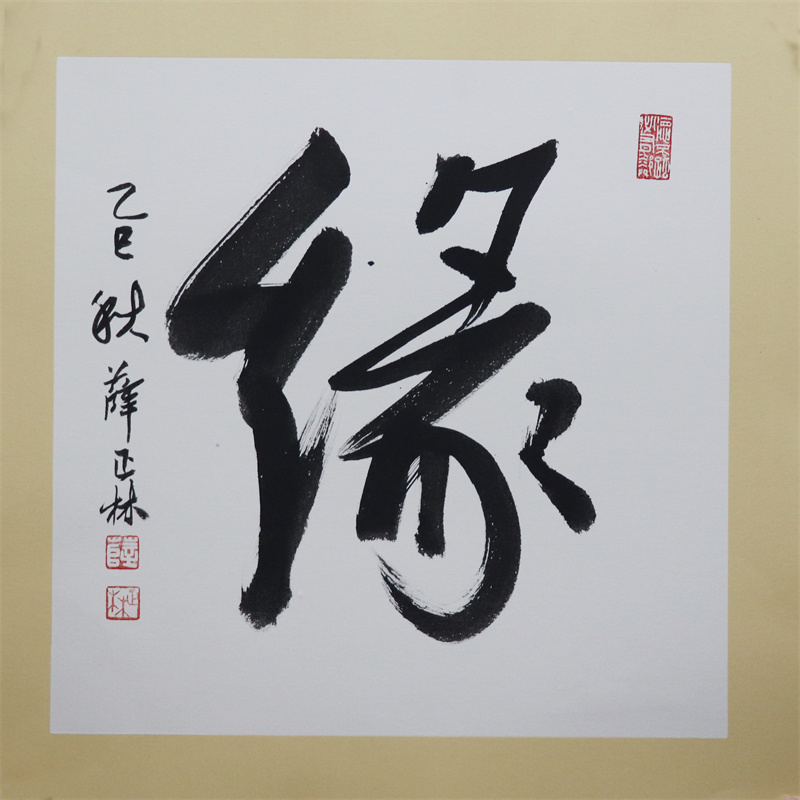 緣
乙巳秋 薛正林